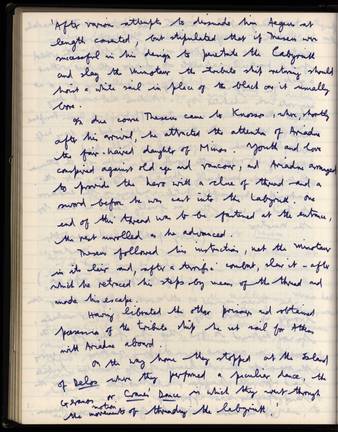 'After various attempts to dissuade him Aegeus at
length consented, but stipulated that if Theseus were
successful in his design to penetrate the Labyrinth
and slay the Minotaur the tribute ship returning should
hoist a white sail in place of the black as it usually
bore.
In due course Theseus came to Knossos, where, shortly
after his arrival, he attracted the attention of Ariadne
the fair-haired daughter of Minos. Youth and love
conspired against old age and rancour, and Ariadne arranged
to provide the hero with a clue of thread and a
sword before he was cast into the Labyrinth. One
end of this thread was to be fastened at the entrance,
the rest unrolled as he advanced.
Theseus followed his instructions, met the Minotaur
in its lair and, after a terrific combat, slew it - after
which he retraced his steps by means of the thread and
made his escape.
Having liberated the other prisoners and obtained
possession of the tribute ship he set sail for Athens
with Ariadne aboard.
On the way home they stopped at the Island
of Delos where they performed a peculiar dance, the
Geranos or Crane Dance in which they went through
the motions of threading the labyrinth.